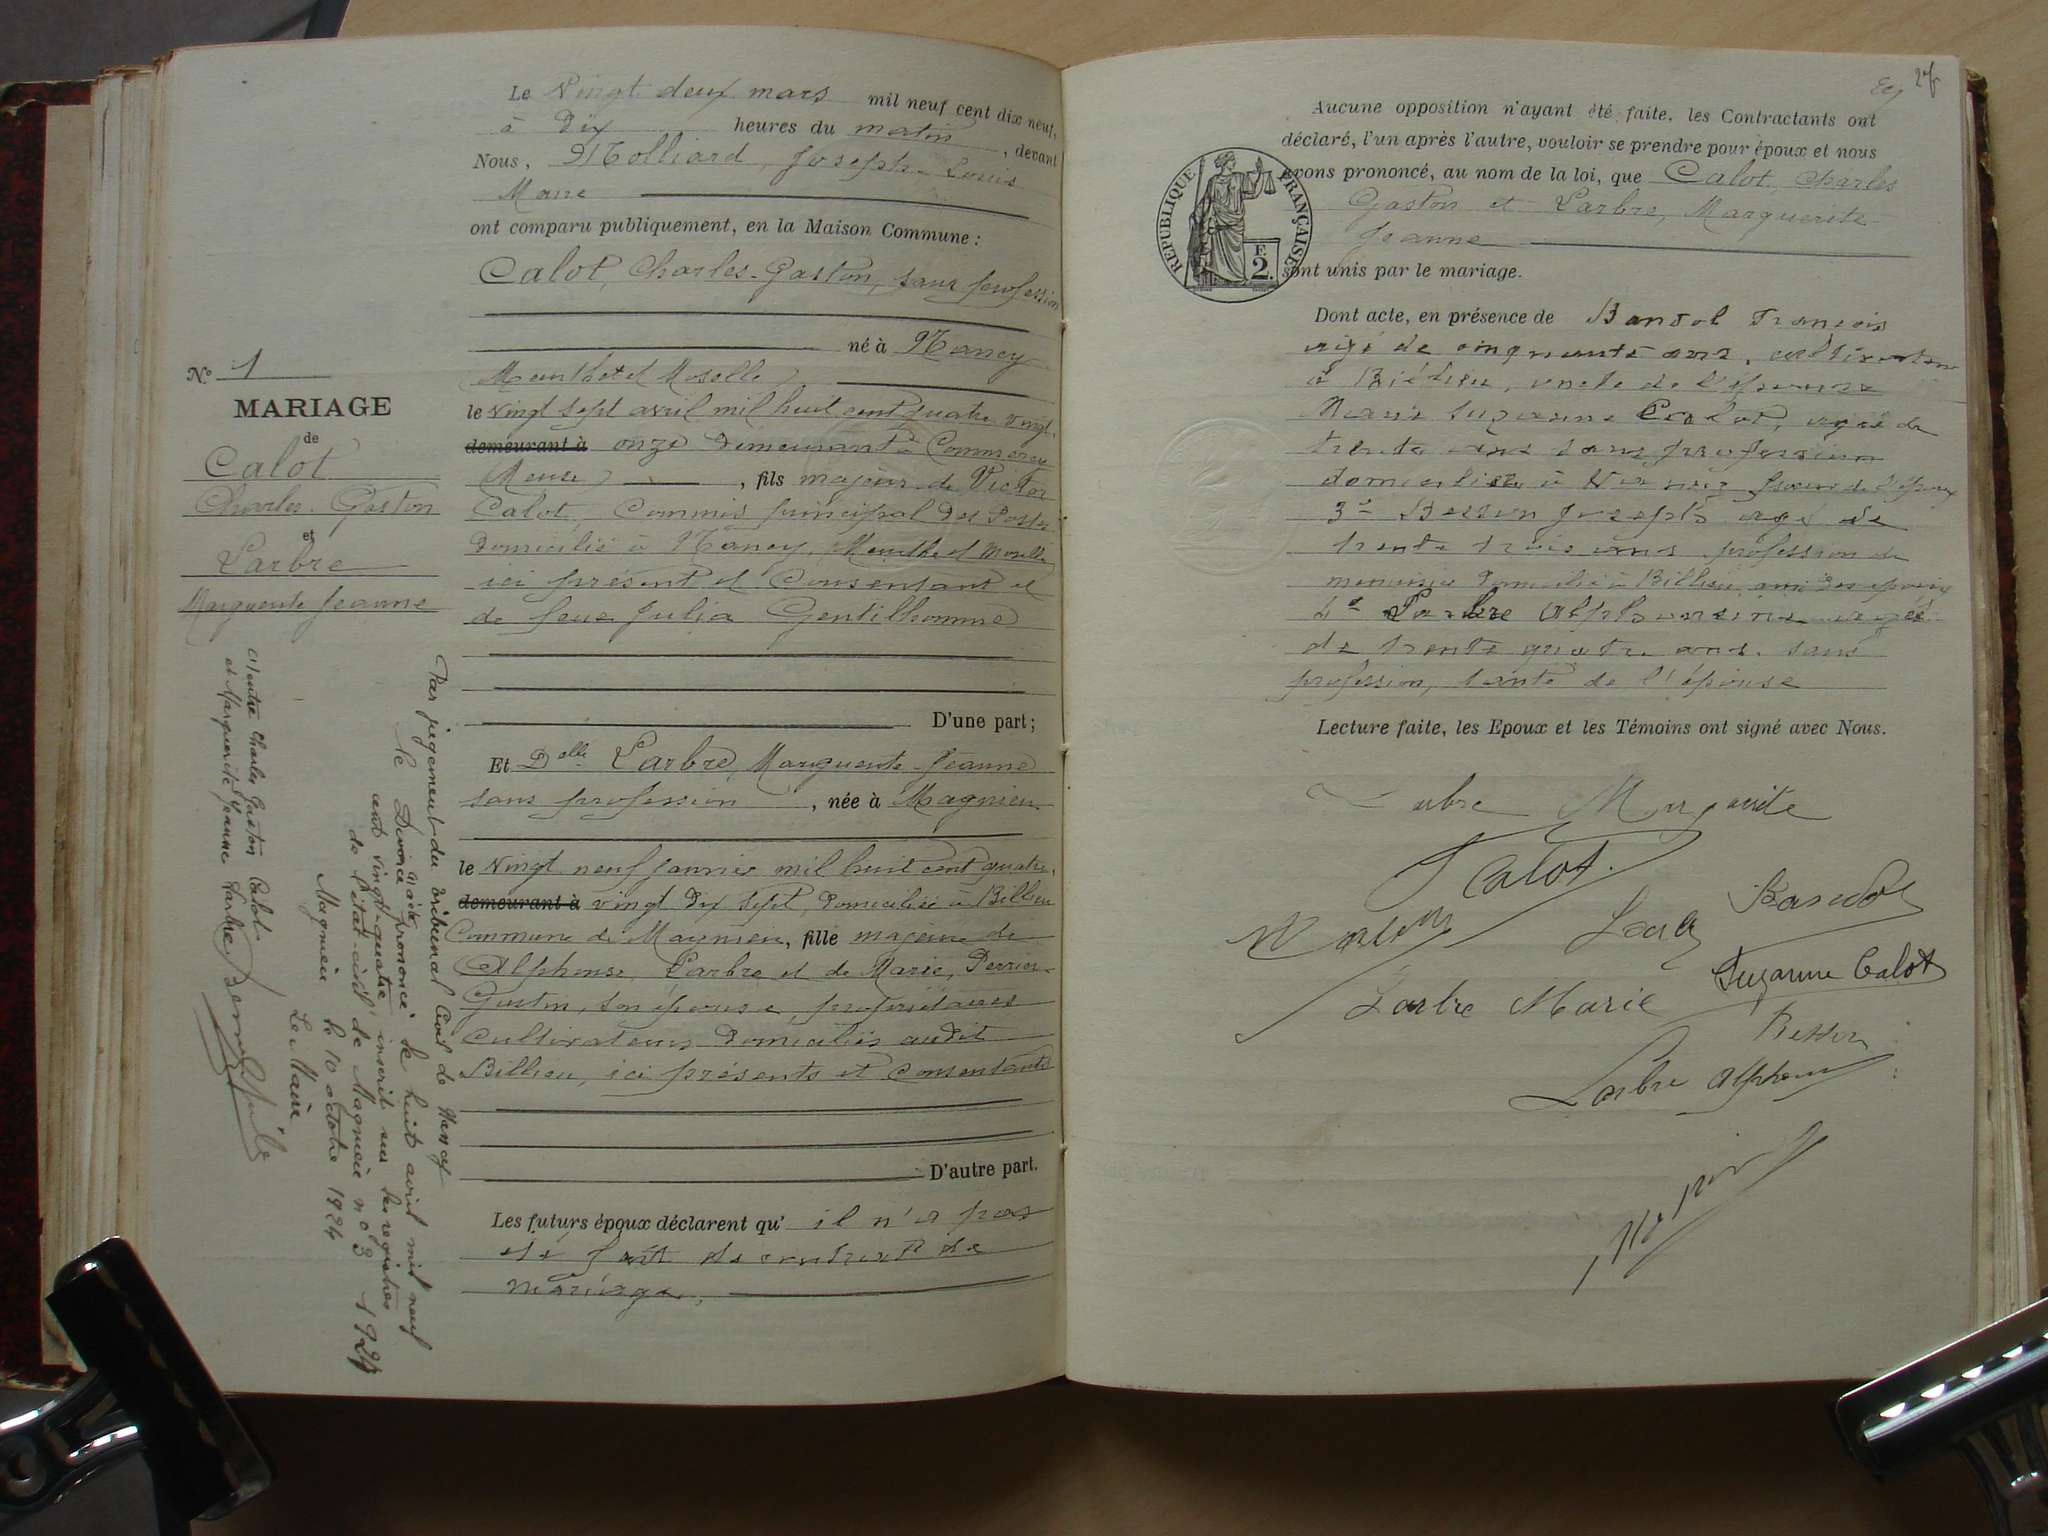 Le Vingt deux mars mil neuf cent dix neuf,
à Dix heures du matin, devant
Nous, Molliard, Joseph Louis
Maire
ont comparu publiquement, en la Maison Commune :
Calot, Charles-Gaston, sans profession
né à Nancy
(Meurthe et Moselle)
le Vingt sept avril mil huit cent quatre vingt
demeurant à onze Demeurant à Commercy
Meuse), fils majeur de Victor
Calot, Commis principal des Postes
Domicilié à Nancy, Meurthe et Moselle
ici présent et Consentant et
de feue Julia Gentilhomme
D'une part;
Et Delle Larbre, Marguerite-Jeanne
sans profession, née à Magnieu
le Vingt neuf janvier mil huit cent quatre
demeurant à vingt Dix sept, Domiciliée à Billieu
Commune de Magnieu, fille majeure de
Alphonse Larbre et de Marie, Perrier-
Gustin, son épouse, propriétaires
Cultivateurs Domiciliés audit
Billieu, ici présents et Consentants
D'autre part.
Les futurs époux déclarent qu' il n'a pas
été fait de contrat de
mariage,
No 1
MARIAGE
de
Calot
Charles-Gaston
et
Larbre
Marguerite Jeanne
Par jugement du tribunal Civil de Nancy
le Divorce a été prononcé le huit avril mil neuf
cent vingt-quatre inscrit sur les registres
de l'état-civil de Magnieu no 3 1924
Magnieu le 10 octobre 1924
Le Maire
entre Charles Gaston Calot
et Marguerite Jeanne Larbre
Aucune opposition n'ayant été faite, les Contractants ont
déclaré, l'un après l'autre, vouloir se prendre pour époux et nous
avons prononcé, au nom de la loi, que Calot, Charles
Gaston et Larbre, Marguerite
Jeanne
sont unis par le mariage.
RÉPUBLIQUE FRANÇAISE
F.
2.
Dont acte, en présence de François
agé de cinquante ans, cultivateur
à Billieu, oncle de l'épouse
Marie Suzanne Calot, agée de
trente ans sans profession
domiciliée à Nancy soeur de l'époux
3º Besson Joseph agé de
trente trois ans profession de
menuisier Domicilié à Billieu, ami des époux
4º Larbre Alphonsine agée
de trente quatre ans. sans
profession, tante de l'épouse
Lecture faite, les Epoux et les Témoins ont signé avec Nous.
Larbre Marguerite
Calot.
Suzanne Calot
Larbre Marie
Larbre Alphonse